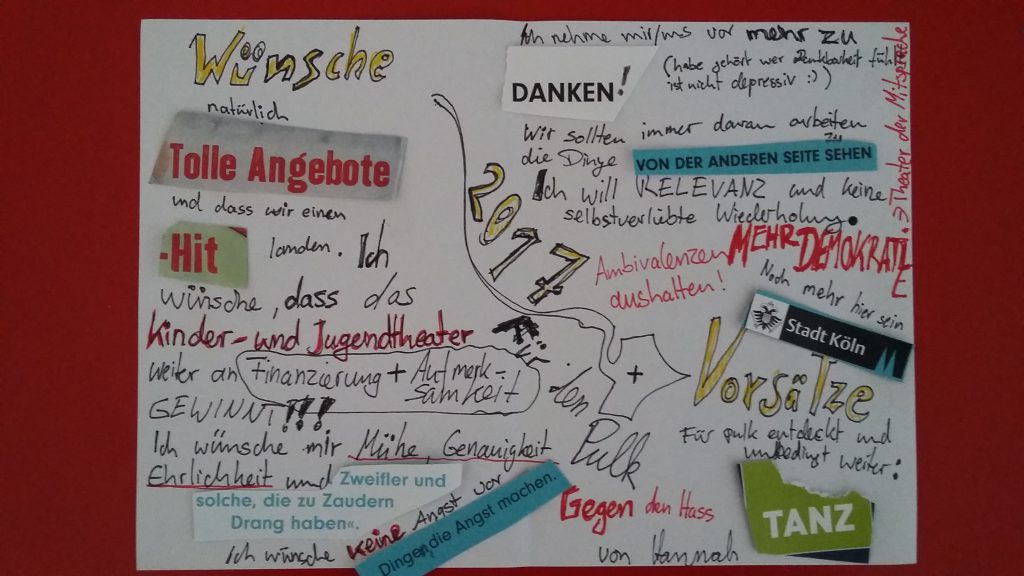 Wünsche
natürlich
Tolle Angebote
und dass wir einen
-Hit landen. Ich
wünsche, dass das
Kinder- und Jugendtheater
weiter an Finanzierung + Aufmerk-
samkeit
GEWINNT!!!
Ich wünsche mir Mühe, Genauigkeit
Ehrlichkeit und Zweifler und
solche, die zu Zaudern
Drang haben«.
Ich wünsche keine Angst vor
Dingen, die Angst machen.
2017
Für
den
Pulk
+
Ich nehme mir/uns vor mehr zu
DANKEN!
(habe gehört wer Dankbarkeit fühlt
ist nicht depressiv :))
Wir sollten immer daran arbeiten
die Dinge VON DER ANDEREN SEITE ZU SEHEN
Ich will RELEVANZ und keine
selbstverliebte Wiederholung.
Ambivalenzen
aushalten!
MEHR DEMOKRATIE
→Theater der Mitsprache
Noch mehr hier sein
Stadt Köln
Vorsätze
Für pulk entdeckt und
unbedingt weiter:
TANZ
Gegen den Hass
von Hannah